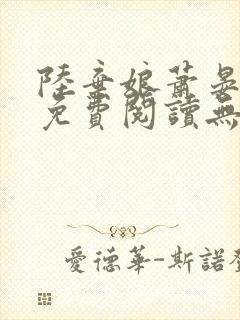 陸棄娘蕭晏
免費閱讀無
愛德華-斯諾登